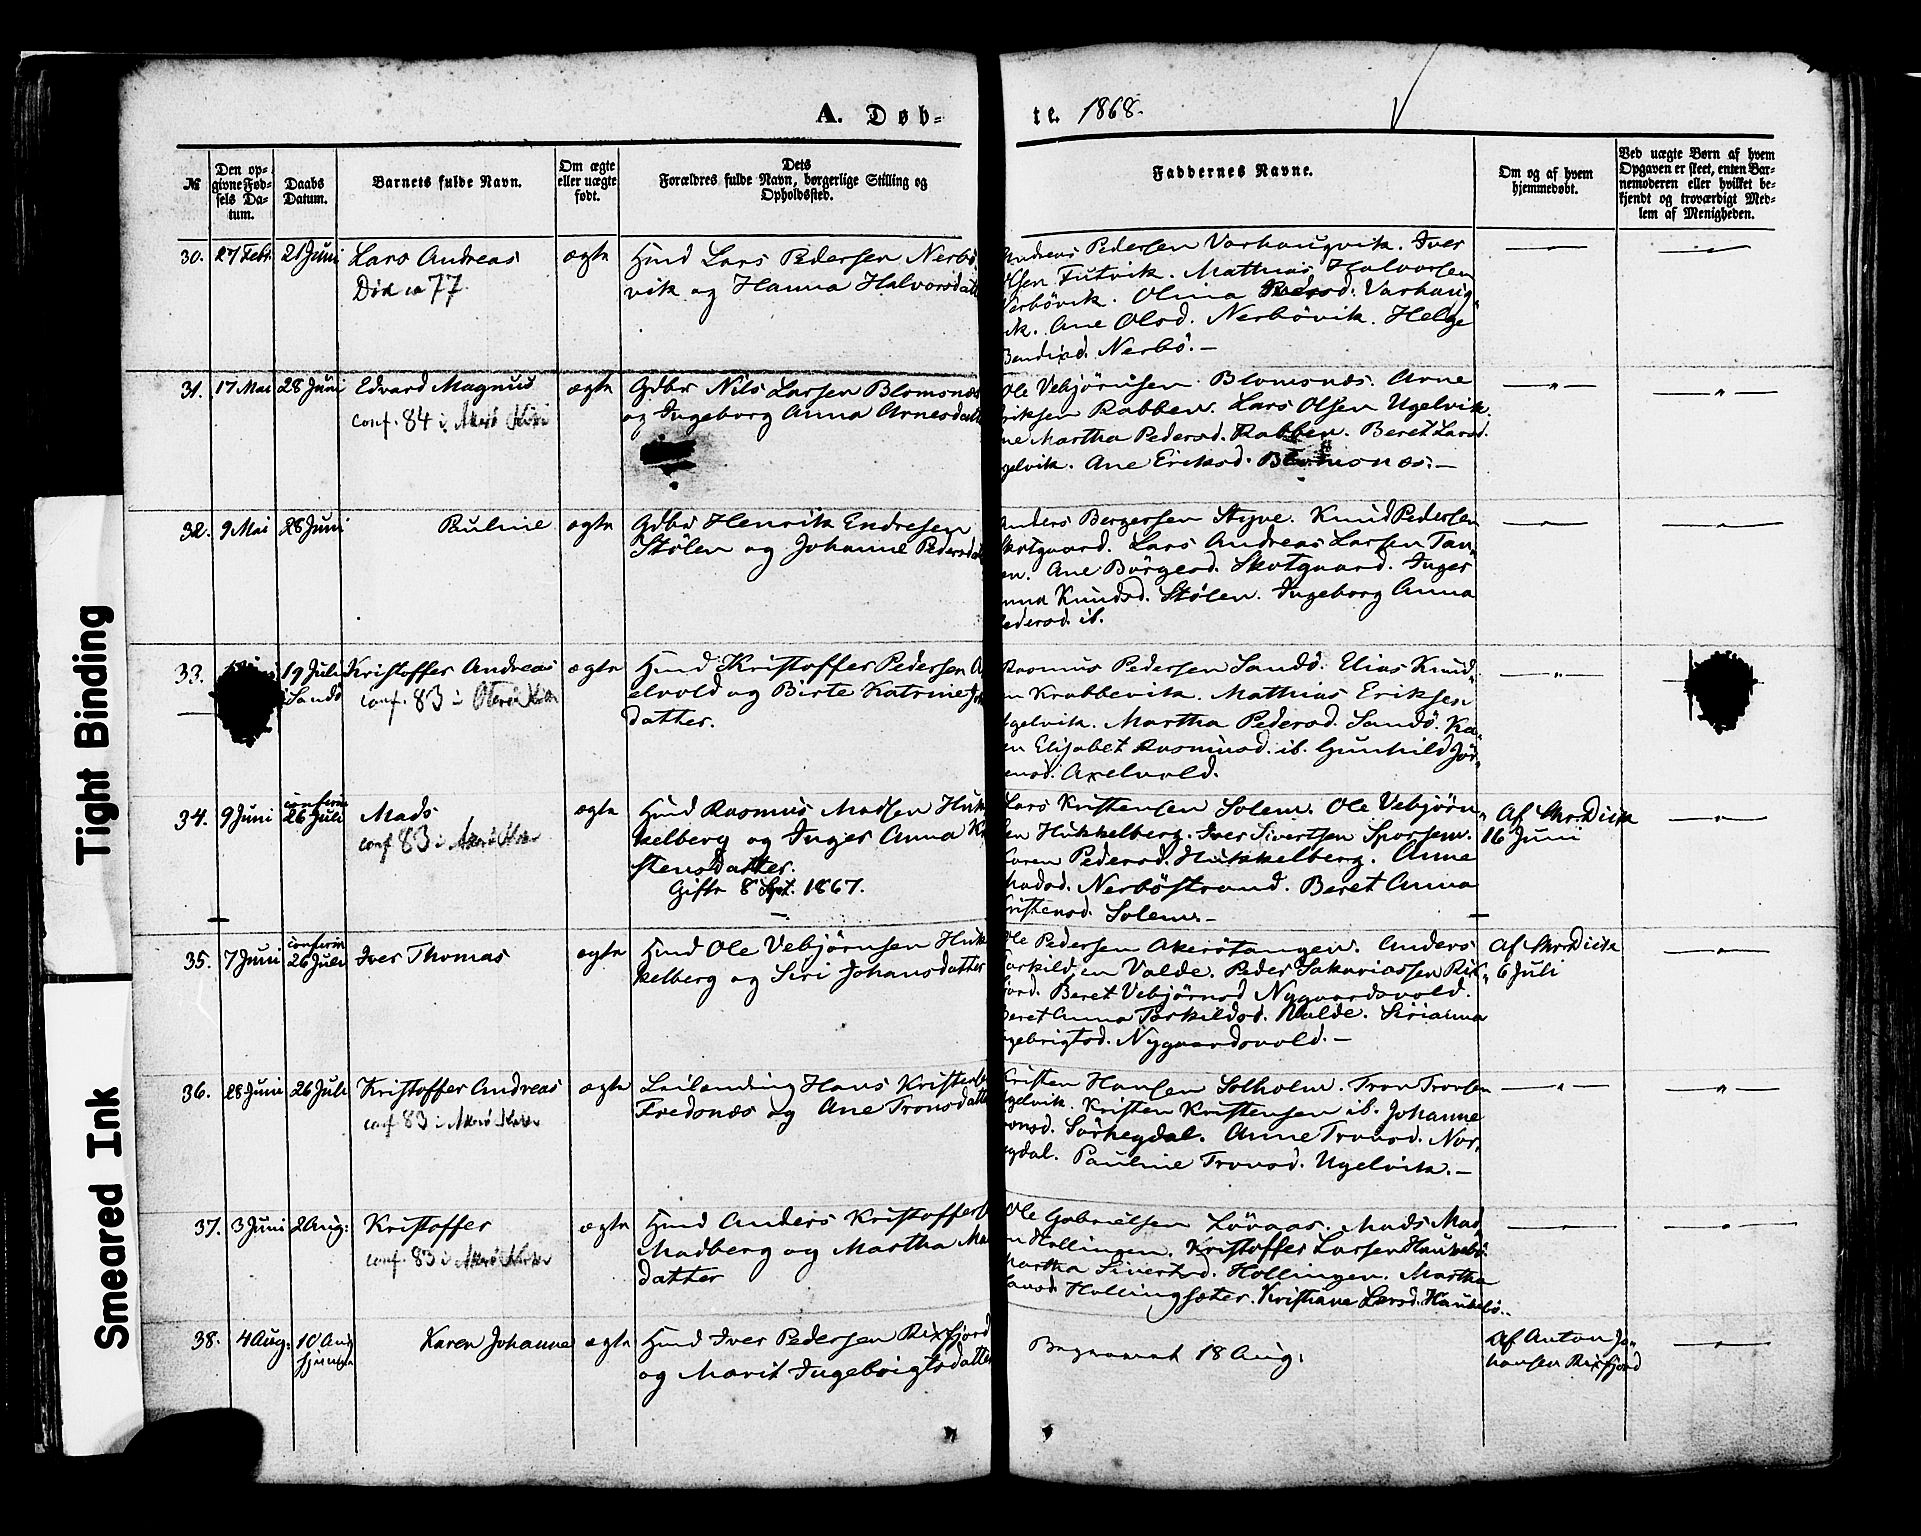 A. Døb-
te. 1868.
№
Den op-
givne Fød-
sels Da-
tum.
Daabs
Datum.
Barnets fulde Navn.
Om ægte
eller uægte
født.
Dets
Forældres fulde Navn, borgerlige Stilling og
Opholdssted.
Faddernes Navne.
Om og af hvem
hjemmedøbt.
Ved uægte Børn af hvem
Opgaven er skeet, enten Bar-
nemoderen eller hvilket be-
kjendt og troværdigt Med-
lem af Menigheden.
30. 27 Febr. 21 Juni Lars Andreas ægte
77
Hmd Lars Pedersen Nerbö
vik og Hanna Halvorsdatt
Andreas Pedersen Varhaugvik. Iver
Olsen Futvik. Mathias Halvorsen
Nerbövik. Olina Pedersd. Varhaug
vik. Ane Olsd. Nerbövik. Helge
Bendixd. Nerbö. —
31. 17 Mai 28 Juni Edvard Magnus ægte
conf. 84 i Akerö Kirke
Gdbr Nils Larsen Blomsnæs
og Ingeborg Anna Arnesdatt
Ole Vebjörnsen Blomsnæs. Arne
riksen Rabben. Lars Olsen Ugelvik.
ne Martha Pedersd. Rabben. Beret Larsd.
gelvik. Ane Eriksd. Blomsnæs. —
32. 9 Mai 28 Juni Pauline ægte
Gdbr Henrik Endresen
Stölen og Johanne Pedersd
Anders Bergersen Styve. Knud Pedersen
Skotgaard. Lars Andreas Larsen Tan
en. Ane Börgesd. Skotgaard. Inger
Anna Knudsd. Stölen. Ingeborg Anna
Pedersd. ib.
33. 19 Juli Kristoffer Andreas ægte
Sandö conf. 83 i Oterö Kirke
Hmd Kristoffer Pedersen A
elvold og Birte Katrine Jö
datter.
Rasmus Pedersen Sandö. Elias Knud
n Krabbevik. Mathias Eriksen
Ugelvik. Martha Pedersd. Sandö. Ka
en Elisabet Rasmusd. ib. Gunhild Jör
ensd. Axelvold.
34. 9 Juni confirm
26 Juli Mads ægte
conf 83 i Akerö Kirke
Hmd Rasmus Madsen Huk
kelberg og Inger Anna Kr
stensdatter.
Gifte 8 Sept. 1867.
Lars Kristensen Solem. Ole Vebjörn
sen Hukkelberg. Iver Sivertsen Sporsem.
Karen Pedersd. Hukkelberg. Anne
Madsd. Nerböstrand. Beret Anna
Kristensd. Solem. —
Af Skr. Dick
16 Juni
35. 7 Juni confirm
26 Juli Iver Thomas ægte
Hmd Ole Vebjörnsen Huk
kelberg og Siri Johansdatter
Ole Pedersen Akerötangen. Anders
Torkildsen Valde. Peder Sakariassen Rix
fjord. Beret Vebjörnsd Nygaardsvold.
Beret Anna Torkildsd. Valde. Sirianna
gebrigtsd. Nygaardsvold. —
Af Skr. Dick
6 Juli
36. 28 Juni 26 Juli Kristoffer Andreas ægte
conf 83 i Akerö Kirke
Leilending Hans Kristens
Fredsnæs og Ane Tronsdatte
Kristen Hansen Solholm. Tron Tronsen
gelvik. Kristen Kristensen ib. Johanne
ronsd. Sörhegdal. Anne Tronsd. Nor
egdal. Pauline Tronsd. Ugelvik. —
37. 3 Juni 2 Aug: Kristoffer ægte
conf. 83 i Akerö Kirke
Hmd Anders Kristoffers
Madberg og Martha Ma
datter
Ole Gabrielsen Lövaas. Mads Mad
n Hollingen. Kristoffer Larsen Haukebö.
Martha Sivertsd. Hollingen. Martha
Hansd. Hollingsæter. Kristiane Larsd. Haukebö.
38. 4 Aug: 10 Aug
hjemme Karen Johanne ægte
Hmd Iver Pedersen Rixfjord
og Marit Ingebrigtsdatter
Begravet 18 Aug.
Af Anton Jo
hansen Rixfjord
Tight Binding
Smeared Ink